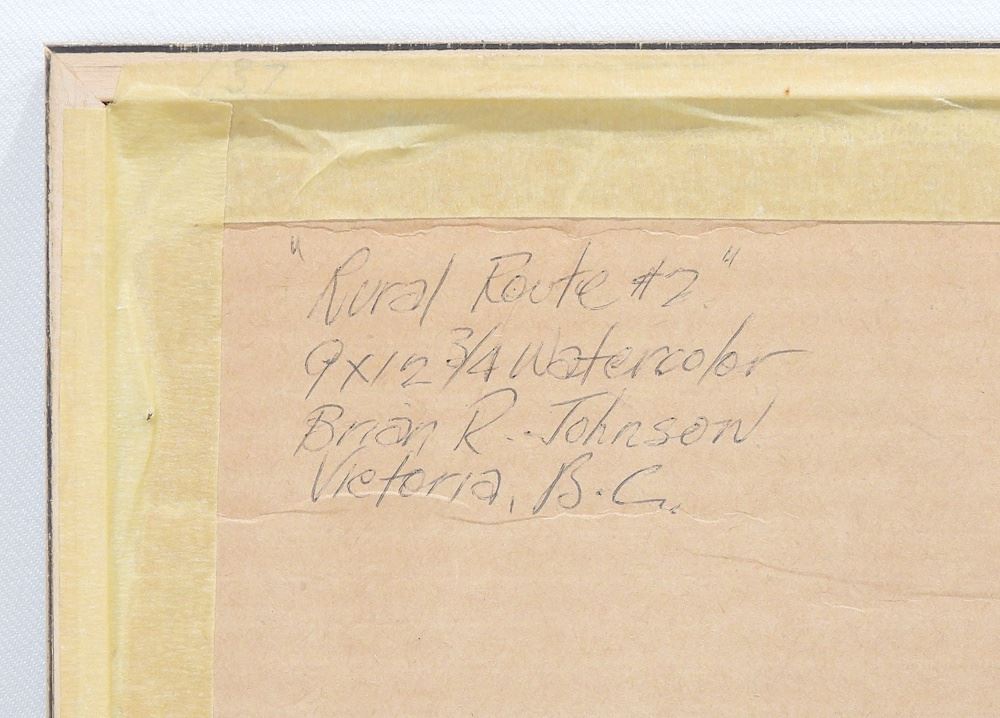 "Rural Route #2"
9x12 3/4 Watercolor
Brian R. Johnson
Victoria, B.C.